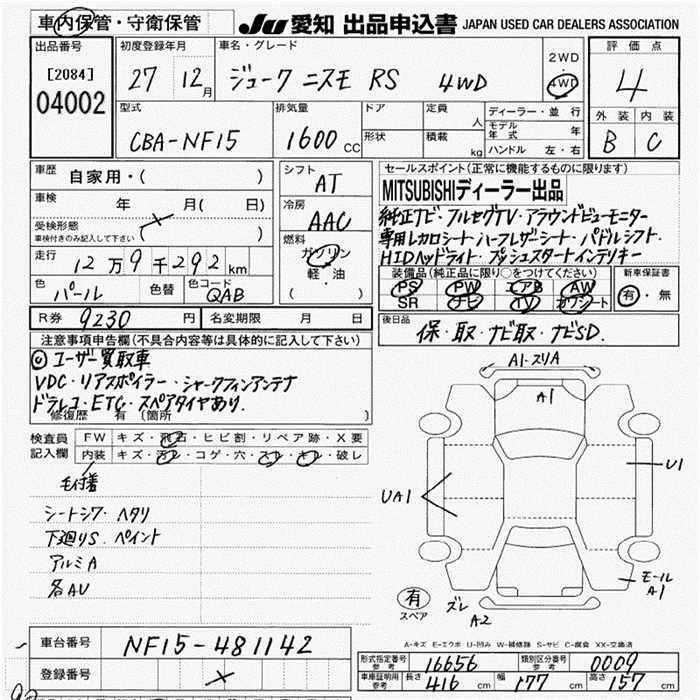 車内保管・守衛保管 JU 愛知 出品申込書 JAPAN USED CAR DEALERS ASSOCIATION
出品番号 初度登録年月 車名・グレード 2WD 評価点
[2084] 27 12月 ジューク ニスモ RS 4WD 4WD 4
04002
外装 内装
型式 排気量 ドア 定員 人 ディーラー・並行 B C
CBA-NF15 1600 CC モデル年式 年
形状 積載 kg ハンドル 左・右
車歴 自家用・( ) シフト AT セールスポイント(正常に機能するものに限ります)
車検 年 月( 日) 冷房 AAC MITSUBISHIディーラー出品
受検形態 ( ) 純正ナビ・フルセグTV・アラウンドビューモニター
車検付きのみ記入して下さい 燃料 専用レカロシート・ハーフレザーシート・パドルシフト・
走行 12万9千292km ガソリン HIDヘッドライト・プッシュスタートインテリキー
色 パール 色替 色コード QAB 軽・油 ( )
装備品(純正品に限り○をつけてください) 新車保証書
PS PW エアB AW 有・無
SR ナビ TV カワシート
R券 9230 円 名変期限 月 日 後日品
保・取・ナビ取・ナビSD.
注意事項申告欄(不具合内容等は具体的に記入して下さい)
◎ユーザー買取車
VDC・リアスポイラー・シャークフィンアンテナ
ドラレコ・ETC・スペアタイヤあり.
修復歴 有 (箇所 )
検査員記入欄 FW キズ・飛石・ヒビ割・リペア跡・X要
内装 キズ・汚レ・コゲ・穴・スレ・キレ・破レ
毛付着
シートシワ・ヘタリ
下廻りS. ペイント
アルミA
各AU
A1・スリA
A1
U1
UA1
モールA1
有 スペア
ズレ A2
A-キズ E-エクボ U-凹み W-補修跡 S-サビ C-腐食 XX-交換済
車台番号 NF15-481142
登録番号
形式指定番号 参考 16656 類別区分番号 参考 0009
車庫証明用 参考 長さ 416 cm 幅 177 cm 高さ 157 cm